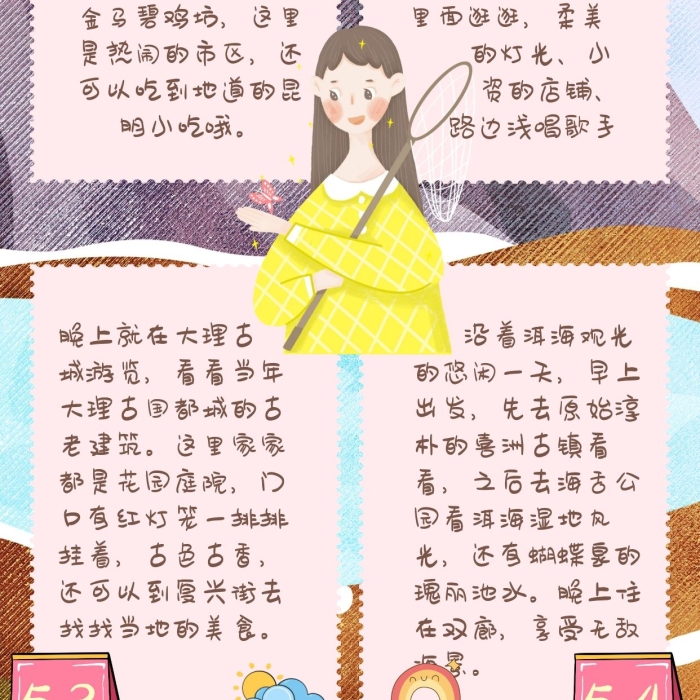 金马碧鸡坊，这里
是热闹的市区，还
可以吃到地道的昆
明小吃哦。
里面逛逛，柔美
的灯光、小
资的店铺、
路边浅唱歌手
晚上就在大理古
城游览，看看当年
大理古国都城的古
老建筑。这里家家
都是花园庭院，门
口有红灯笼一排排
挂着，古色古香，
还可以到复兴街去
找找当地的美食。
沿着洱海观光
的悠闲一天，早上
出发，先去原始淳
朴的喜洲古镇看
看，之后去海舌公
园看洱海湿地风
光，还有蝴蝶泉的
瑰丽池水。晚上住
在双廊，享受无敌
海景。
5.3
5.4